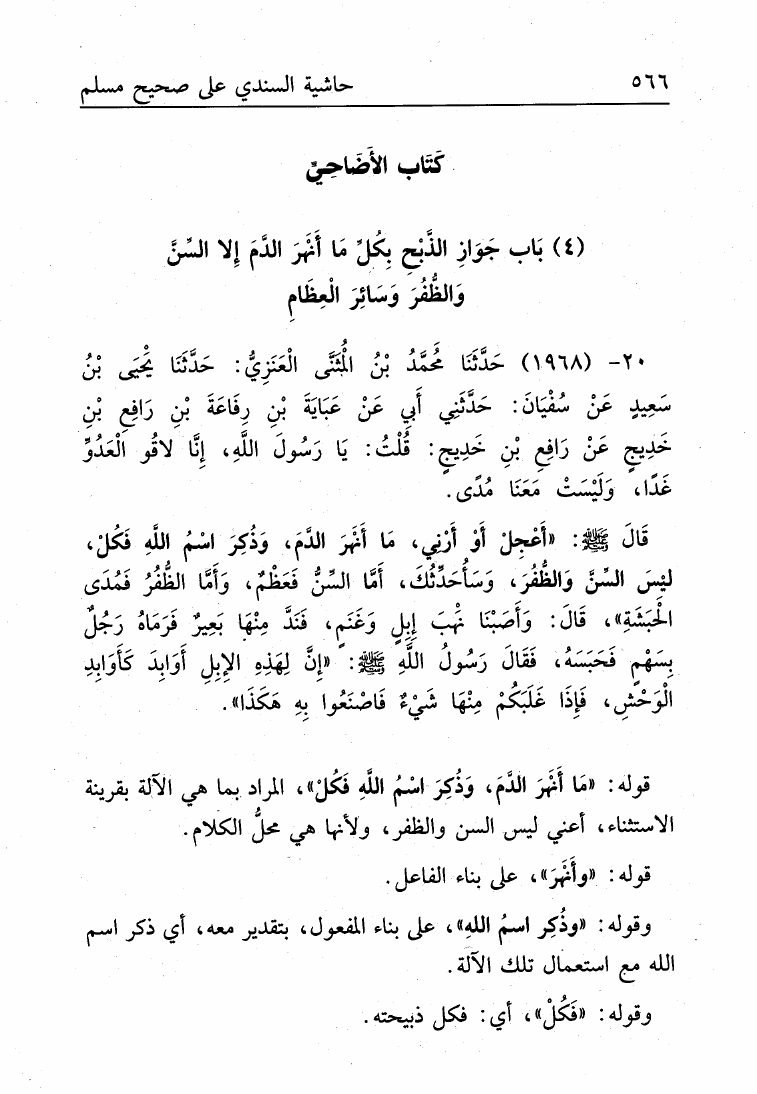 ٥٦٦ حاشية السندي على صحيح مسلم
كَتَاب الأَضَاحِيِّ
(٤) بَاب جَوَازِ الذَّبْحِ بِكُلِّ مَا أَنْهَرَ الدَّمَ إِلا السِّنَّ
وَالظُّفُرَ وَسَائِرَ الْعِظَامِ
٢٠- (١٩٦٨) حَدَّثَنَا مُحَمَّدُ بْنُ الْمُثَنَّى الْعَنَزِيُّ: حَدَّثَنَا يَحْيَى بْنُ
سَعِيدٍ عَنْ سُفْيَانَ: حَدَّثَنِي أَبِي عَنْ عَبَايَةَ بْنِ رِفَاعَةَ بْنِ رَافِعِ بْنِ
خَدِيجٍ عَنْ رَافِعِ بْنِ خَدِيجٍ: قُلْتُ: يَا رَسُولَ اللَّهِ، إِنَّا لاقُو الْعَدُوِّ
غَدًا، وَلَيْسَتْ مَعَنَا مُدًى.
قَالَ ﷺ: «أَعْجِلْ أَوْ أَرْنِي، مَا أَنْهَرَ الدَّمَ، وَذُكِرَ اسْمُ اللَّهِ فَكُلْ،
لَيْسَ السِّنَّ وَالظُّفُرَ، وَسَأُحَدِّثُكَ، أَمَّا السِّنُّ فَعَظْمٌ، وَأَمَّا الظُّفُرُ فَمُدَى
الْحَبَشَةِ»، قَالَ: وَأَصَبْنَا نَهْبَ إِبِلٍ وَغَنَمٍ، فَنَدَّ مِنْهَا بَعِيرٌ فَرَمَاهُ رَجُلٌ
بِسَهْمٍ فَحَبَسَهُ، فَقَالَ رَسُولُ اللَّهِ ﷺ: «إِنَّ لِهَذِهِ الإِبِلِ أَوَابِدَ كَأَوَابِدِ
الْوَحْشِ، فَإِذَا غَلَبَكُمْ مِنْهَا شَيْءٌ فَاصْنَعُوا بِهِ هَكَذَا».
قوله: «مَا أَنْهَرَ الدَّمَ، وَذُكِرَ اسْمُ اللَّهِ فَكُلْ»، المراد بما هي الآلة بقرينة
الاستثناء، أعني ليس السن والظفر، ولأنها هي محلُّ الكلام.
قوله: «وأَنْهَرَ»، على بناء الفاعل.
وقوله: «وذُكِر اسمُ اللهِ»، على بناء المفعول، بتقدير معه، أي ذكر اسم
الله مع استعمال تلك الآلة.
وقوله: «فَكُلْ»، أي: فكل ذبيحته.